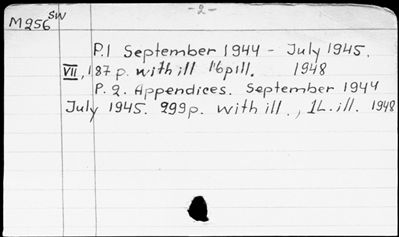 -2-
M256 SW
P.1 September 1944 - July 1945.
VII, 187 p. with ill 16 p ill. 1948
P. 2. Appendices. September 1944
July 1945. 299 p. with ill., 1L. ill. 1948